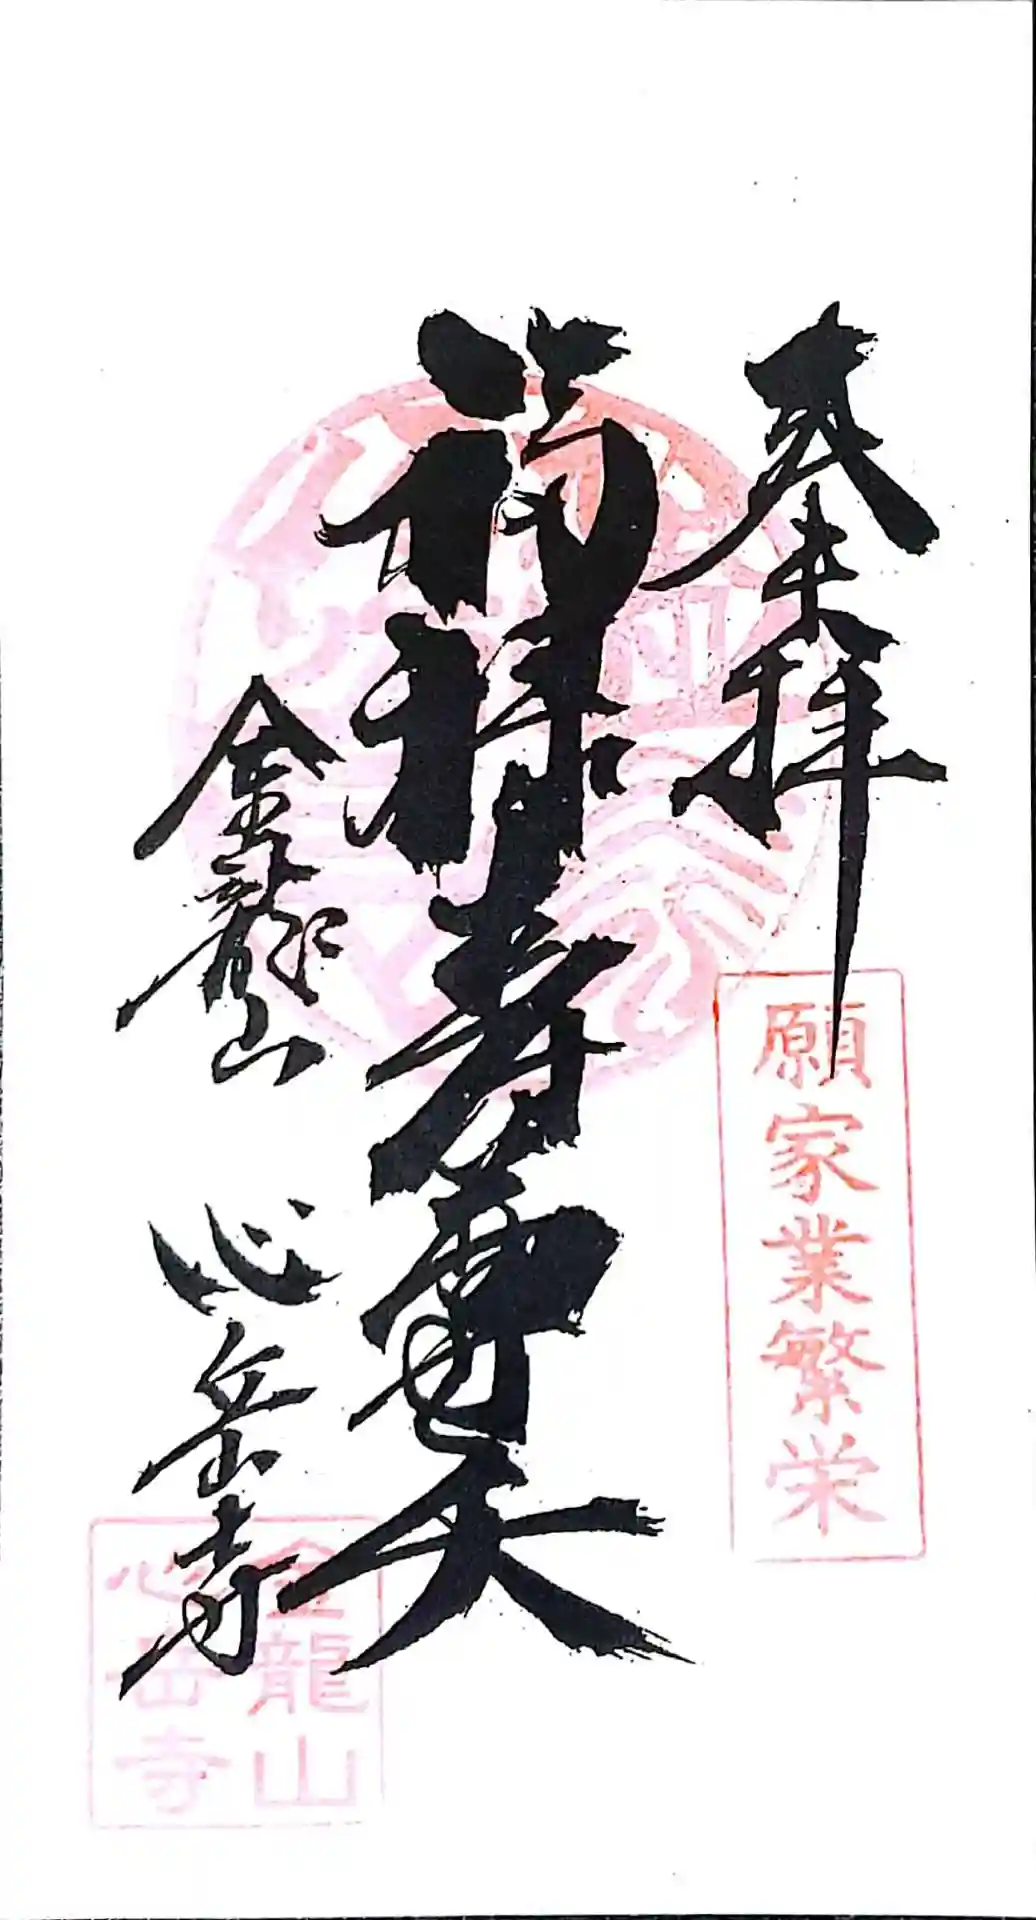 奉拝
願家業繁栄
福禄寿尊天
金龍山
心岳寺
金龍山
心岳寺